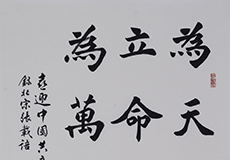 為天
立命
為萬
喜迎中國共
錄北宋張載語